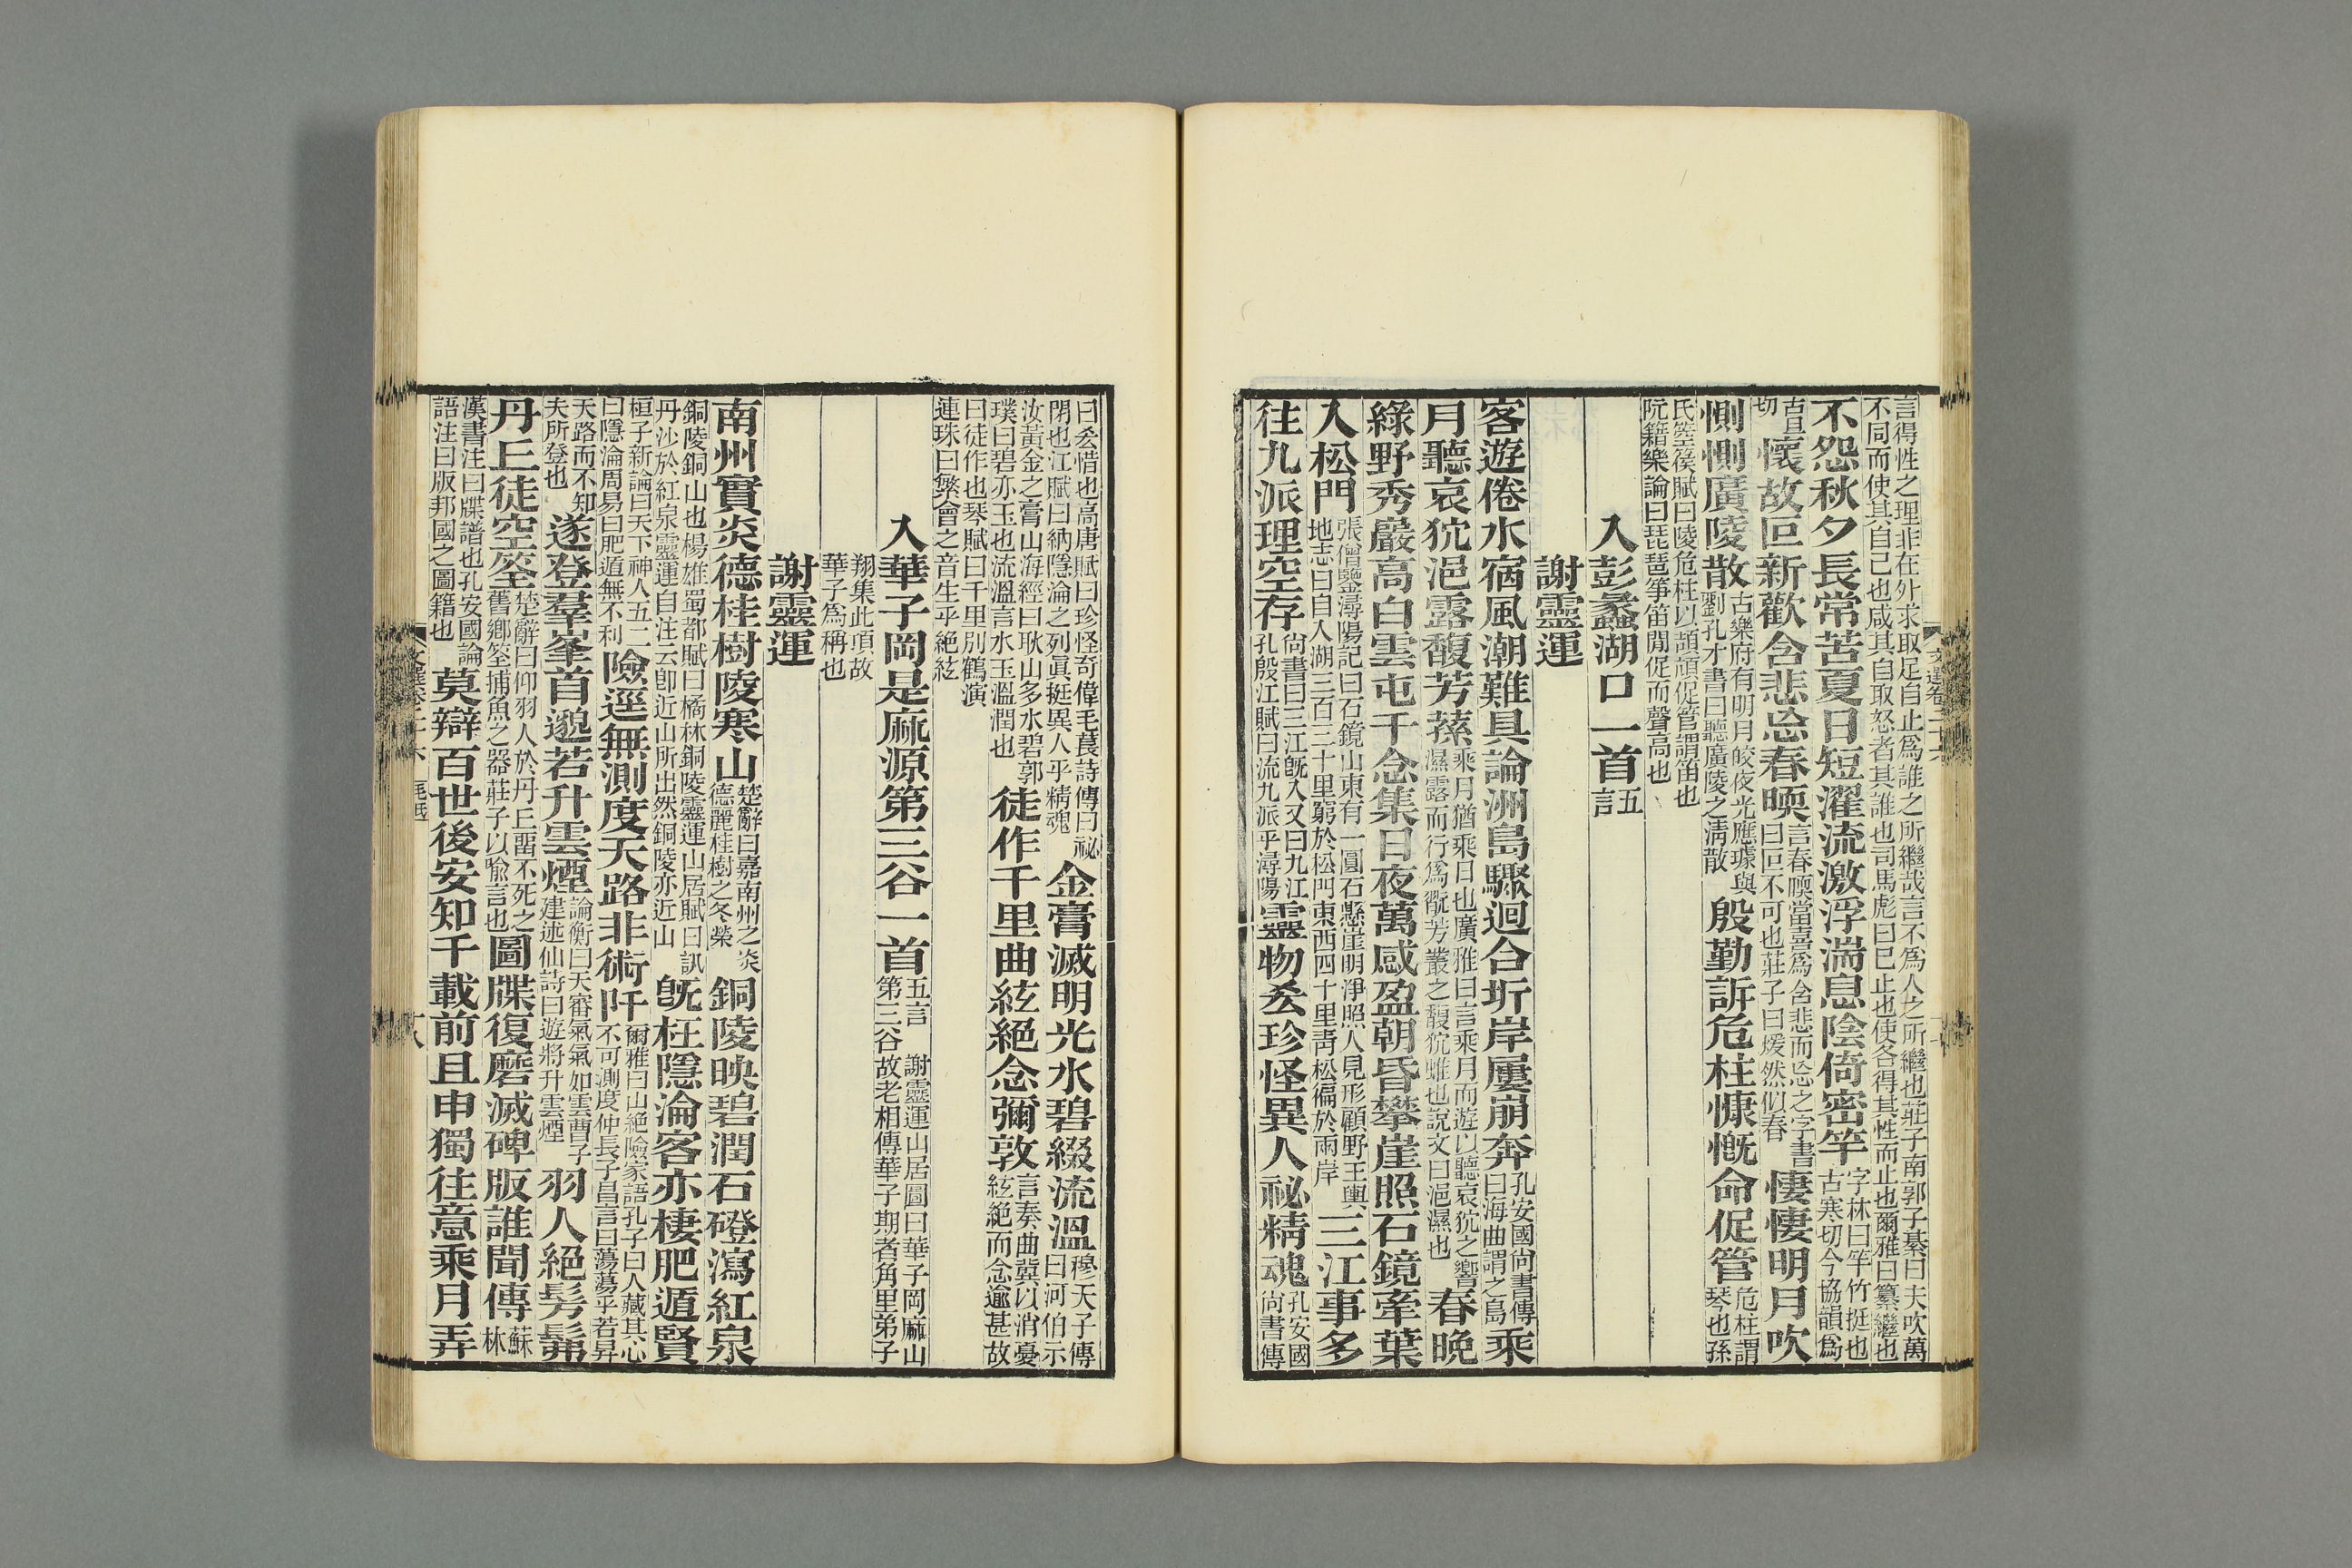 言得性之理非在外求取足自止爲誰之所繼哉言不爲人之所繼也莊子南郭子綦曰夫吹萬
不同而使其自己也咸其自取怒者其誰也司馬彪曰已止也使各得其性而止也爾雅曰纂繼也
不怨秋夕長常苦夏日短濯流激浮湍息陰倚密竿字林曰竿竹挺也古寒切今協韻爲
古旦切懷故叵新歡含悲忘春暝言春暝當喜爲含悲而忘之字書曰叵不可也莊子曰煖然似春悽悽明月吹
惻惻廣陵散古樂府有明月皎夜光應璩與劉孔才書曰聽廣陵之淸散殷勤訴危柱慷慨命促管危柱謂琴也孫
氏箜篌賦曰陵危柱以頡頏促管謂笛也
阮籍樂論曰琵琶箏笛閒促而聲高也
入彭蠡湖口一首五言
謝靈運
客遊倦水宿風潮難具論洲島驟迴合圻岸屢崩奔孔安國尙書傳曰海曲謂之島乘
月聽哀狖浥露馥芳蓀乘月猶乘日也廣雅曰言乘月而遊以聽哀狖之響濕露而行爲翫芳叢之馥狖蜼也說文曰浥濕也春晩
綠野秀巖高白雲屯千念集日夜萬感盈朝昏攀崖照石鏡牽葉
入松門張僧鑒潯陽記曰石鏡山東有一圓石懸崖明淨照人見形顧野王輿地志曰自入湖三百三十里窮於松門東西四十里靑松徧於兩岸三江事多
往九派理空存尙書曰三江旣入又曰九江孔殷江賦曰流九派乎潯陽靈物㕘珍怪異人祕精魂孔安國尙書傳
曰㕘惜也高唐賦曰珍怪奇偉毛萇詩傳曰祕閉也江賦曰納隱淪之列眞挺異人乎精魂金膏滅明光水碧綴流溫穆天子傳曰河伯示
汝黃金之膏山海經曰耿山多水碧郭璞曰碧亦玉也流溫言水玉溫潤也徒作千里曲絃絕念彌敦言奏曲冀以消憂絃絕而念逾甚故
曰徒作也琴賦曰千里別鶴演
連珠曰繁會之音生乎絕絃
入華子岡是麻源第三谷一首五言　謝靈運山居圖曰華子岡麻山第三谷故老相傳華子期者角里弟子
翔集此頂故
華子爲稱也
謝靈運
南州實炎德桂樹陵寒山楚辭曰嘉南州之炎德麗桂樹之冬榮銅陵映碧潤石磴瀉紅泉
銅陵銅山也楊雄蜀都賦曰橘林銅陵靈運山居賦曰訊丹沙於紅泉靈運自注云卽近山所出然銅陵亦近山旣枉隱淪客亦棲肥遁賢
桓子新論曰天下神人五二曰隱淪周易曰肥遁無不利險逕無測度天路非術阡爾雅曰山絕險家語孔子曰人藏其心不可測度仲長子昌言曰蕩蕩乎若昇
天路而不知夫所登也遂登羣峯首邈若升雲煙論衡曰天審氣氣如雲曹子建述仙詩曰遊將升雲煙羽人絕髣髴
丹丘徒空筌楚辭曰仰羽人於丹丘畱不死之舊鄉筌捕魚之器莊子以喩言也圖牒復磨滅碑版誰聞傳蘇林
漢書注曰牒譜也孔安國論語注曰版邦國之圖籍也莫辯百世後安知千載前且申獨往意乘月弄
文選卷二十六
十八